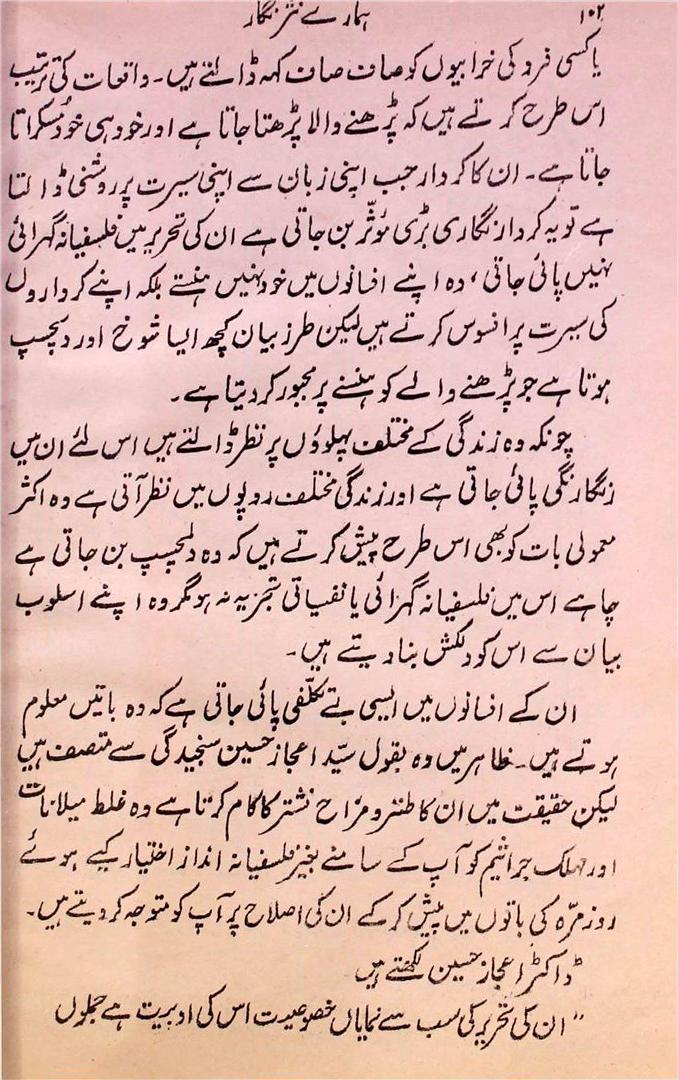 ۱۰۲ ہمارے نثر نگار
یا کسی فرد کی خرابیوں کو صاف صاف کہہ ڈالتے ہیں۔ واقعات کی ترتیب
اس طرح کرتے ہیں کہ پڑھنے والا پڑھتا جاتا ہے اور خود ہی خود مسکراتا
جاتا ہے۔ ان کا کردار جب اپنی زبان سے اپنی سیرت پر روشنی ڈالتا
ہے تو یہ کردار نگاری بڑی مؤثّر بن جاتی ہے ان کی تحریر میں فلسفیانہ گہرائی
نہیں پائی جاتی، وہ اپنے افسانوں میں خود نہیں ہنستے بلکہ اپنے کرداروں
کی سیرت پر افسوس کرتے ہیں لیکن طرز بیان کچھ ایسا شوخ اور دلچسپ
ہوتا ہے جو پڑھنے والے کو ہنسنے پر مجبور کر دیتا ہے۔
چونکہ وہ زندگی کے مختلف پہلوؤں پر نظر ڈالتے ہیں اس لئے ان میں
رنگا رنگی پائی جاتی ہے اور زندگی مختلف روپوں میں نظر آتی ہے وہ اکثر
معمولی بات کو بھی اس طرح پیش کرتے ہیں کہ وہ دلچسپ بن جاتی ہے
چاہے اس میں فلسفیانہ گہرائی یا نفسیاتی تجزیہ نہ ہو مگر وہ اپنے اسلوب
بیان سے اس کو دلکش بنا دیتے ہیں۔
ان کے افسانوں میں ایسی بے تکلّفی پائی جاتی ہے کہ وہ باتیں معلوم
ہوتے ہیں۔ ظاہر میں وہ بقول سیّد اعجاز حسین سنجیدگی سے متصف ہیں
لیکن حقیقت میں ان کا طنز و مزاح نشتر کا کام کرتا ہے وہ غلط میلانات
اور مہلک جراثیم کو آپ کے سامنے بغیر فلسفیانہ انداز اختیار کیے ہوئے
روزمرّہ کی باتوں میں پیش کر کے ان کی اصلاح پر آپ کو متوجہ کر دیتے ہیں۔
ڈاکٹر اعجاز حسین لکھتے ہیں
"ان کی تحریر کی سب سے نمایاں خصوصیت اس کی ادبیت ہے جملوں